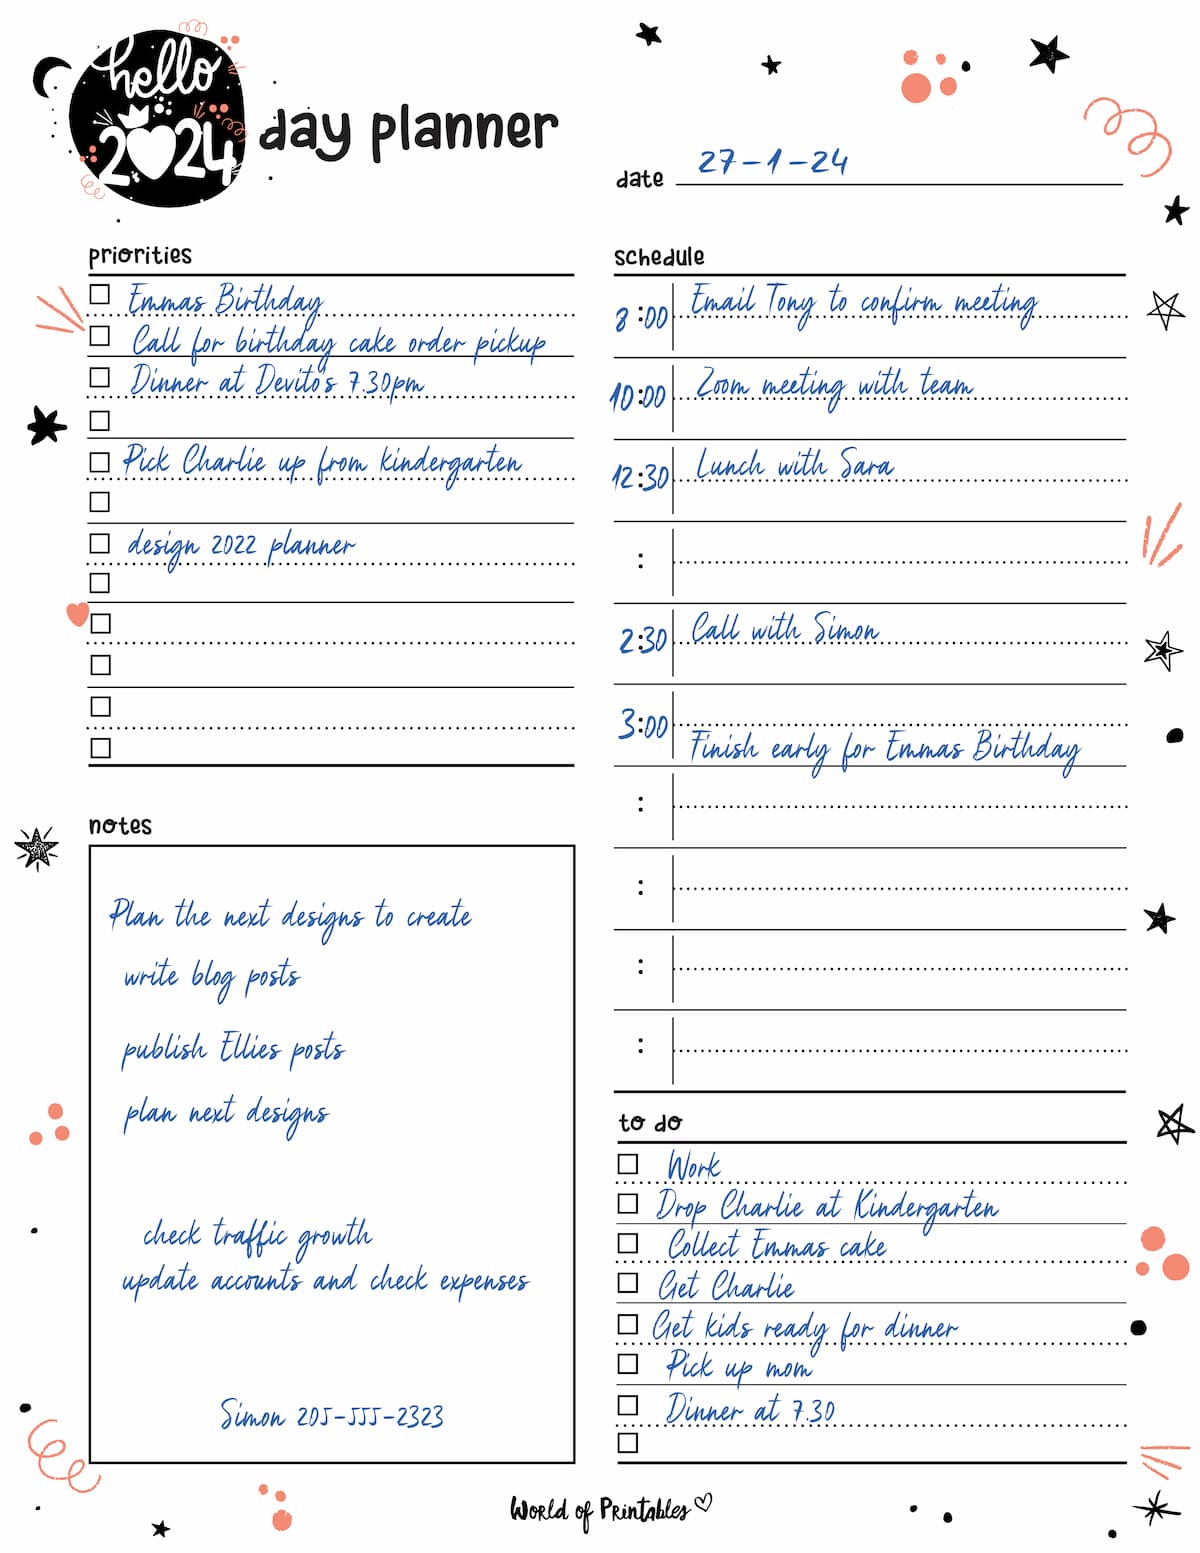 hello
2024
day planner
date 27-1-24
priorities
Emmas Birthday
Call for birthday cake order pickup
Dinner at Devito's 7.30pm
Pick Charlie up from kindergarten
design 2022 planner
notes
Plan the next designs to create
write blog posts
publish Ellies posts
plan next designs
check traffic growth
update accounts and check expenses
Simon 205-555-2323
schedule
8:00 Email Tony to confirm meeting
10:00 Zoom meeting with team
12:30 Lunch with Sara
:
2:30 Call with Simon
3:00
Finish early for Emmas Birthday
:
:
:
:
to do
Work
Drop Charlie at Kindergarten
Collect Emmas cake
Get Charlie
Get kids ready for dinner
Pick up mom
Dinner at 7.30
World of Printables